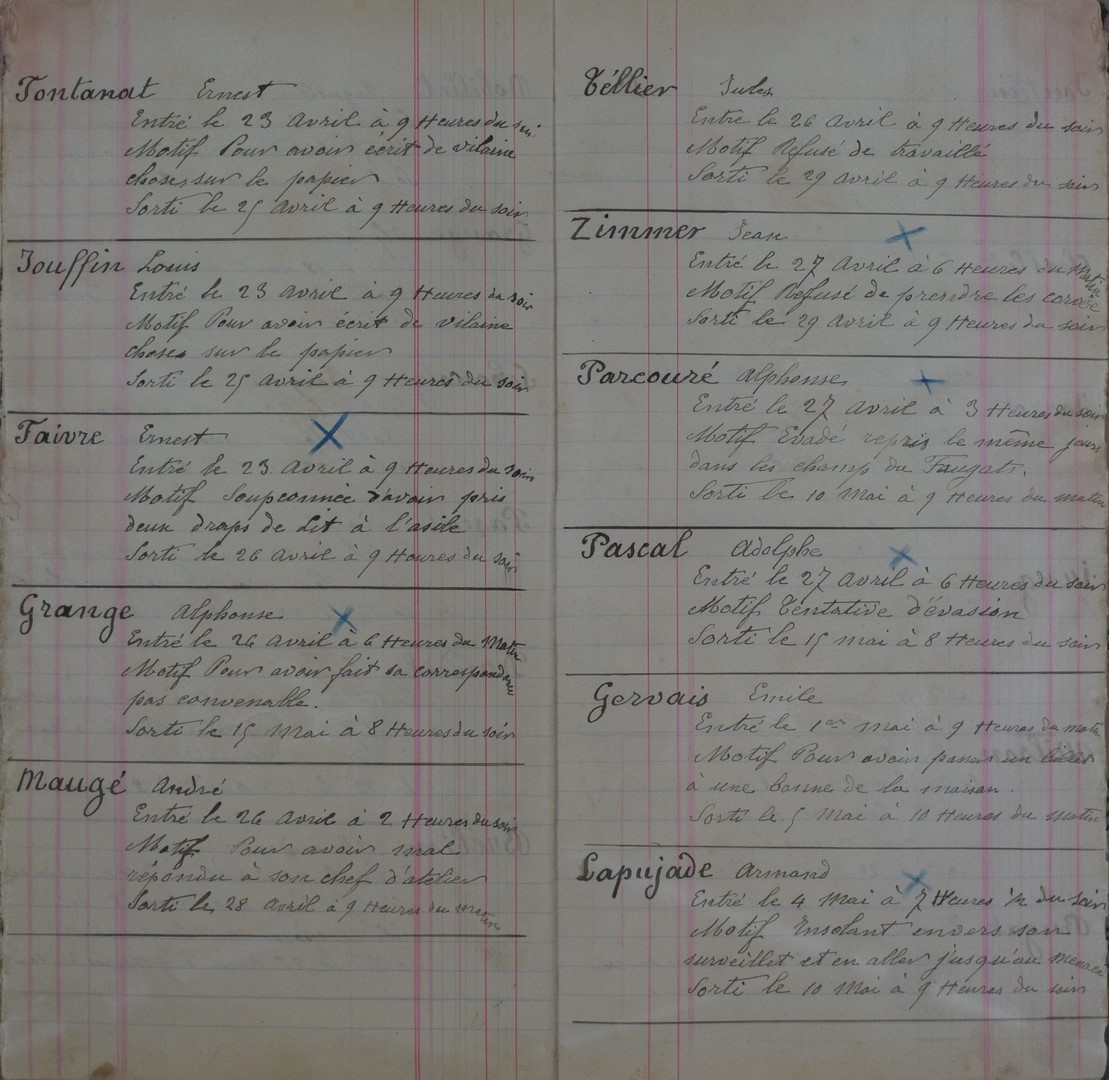 Fontanat Ernest
Entré le 23 Avril à 9 Heures du soir
Motif Pour avoir écrit de vilaine
choses sur le papier
Sorti le 25 Avril à 9 Heures du soir
Jouffin Louis
Entré le 23 Avril à 9 Heures du soir
Motif Pour avoir écrit de vilaine
choses sur le papier
Sorti le 25 Avril à 9 Heures du soir
Faivre Ernest
Entré le 23 Avril à 9 Heures du soir
Motif Soupconnée d'avoir pris
deux draps de Lit à l'asile
Sorti le 26 Avril à 9 Heures du soir
Grange Alphonse
Entré le 26 Avril à 6 Heures du Matin
Motif Pour avoir fait sa correspondance
pas convenable.
Sorti le 15 Mai à 8 Heures du soir
Maugé André
Entré le 26 Avril à 2 Heures du soir
Motif Pour avoir mal
répondu à son chef d'atelier
Sorti le 28 Avril à 9 Heures du matin
Téllier Jules
Entré le 26 Avril à 9 Heures du soir
Motif Refusé de travaillé
Sorti le 29 Avril à 9 Heures du soir
Zimmer Jean
Entré le 27 Avril à 6 Heures du Matin
Motif Refusé de prendre les corvée
Sorti le 29 Avril à 9 Heures du soir
Parcouré Alphonse
Entré le 27 Avril à 3 Heures du soir
Motif Evadé repris le même jour
dans les champ du
Sorti le 10 Mai à 9 Heures du matin
Pascal Adolphe
Entré le 27 Avril à 6 Heures du soir
Motif Tentative d'évasion
Sorti le 15 mai à 8 Heures du soir
Gervais Emile
Entré le 1er Mai à 9 Heures du matin
Motif Pour avoir passer un billet
à une bonne de la maison.
Sorti le 5 Mai à 10 Heures du matin
Lapujade Armand
Entré le 4 Mai à 7 Heures ½ du soir
Motif Insolant envers son
surveillet et en aller jusqu'au menace
Sorti le 10 Mai à 9 Heures du soir